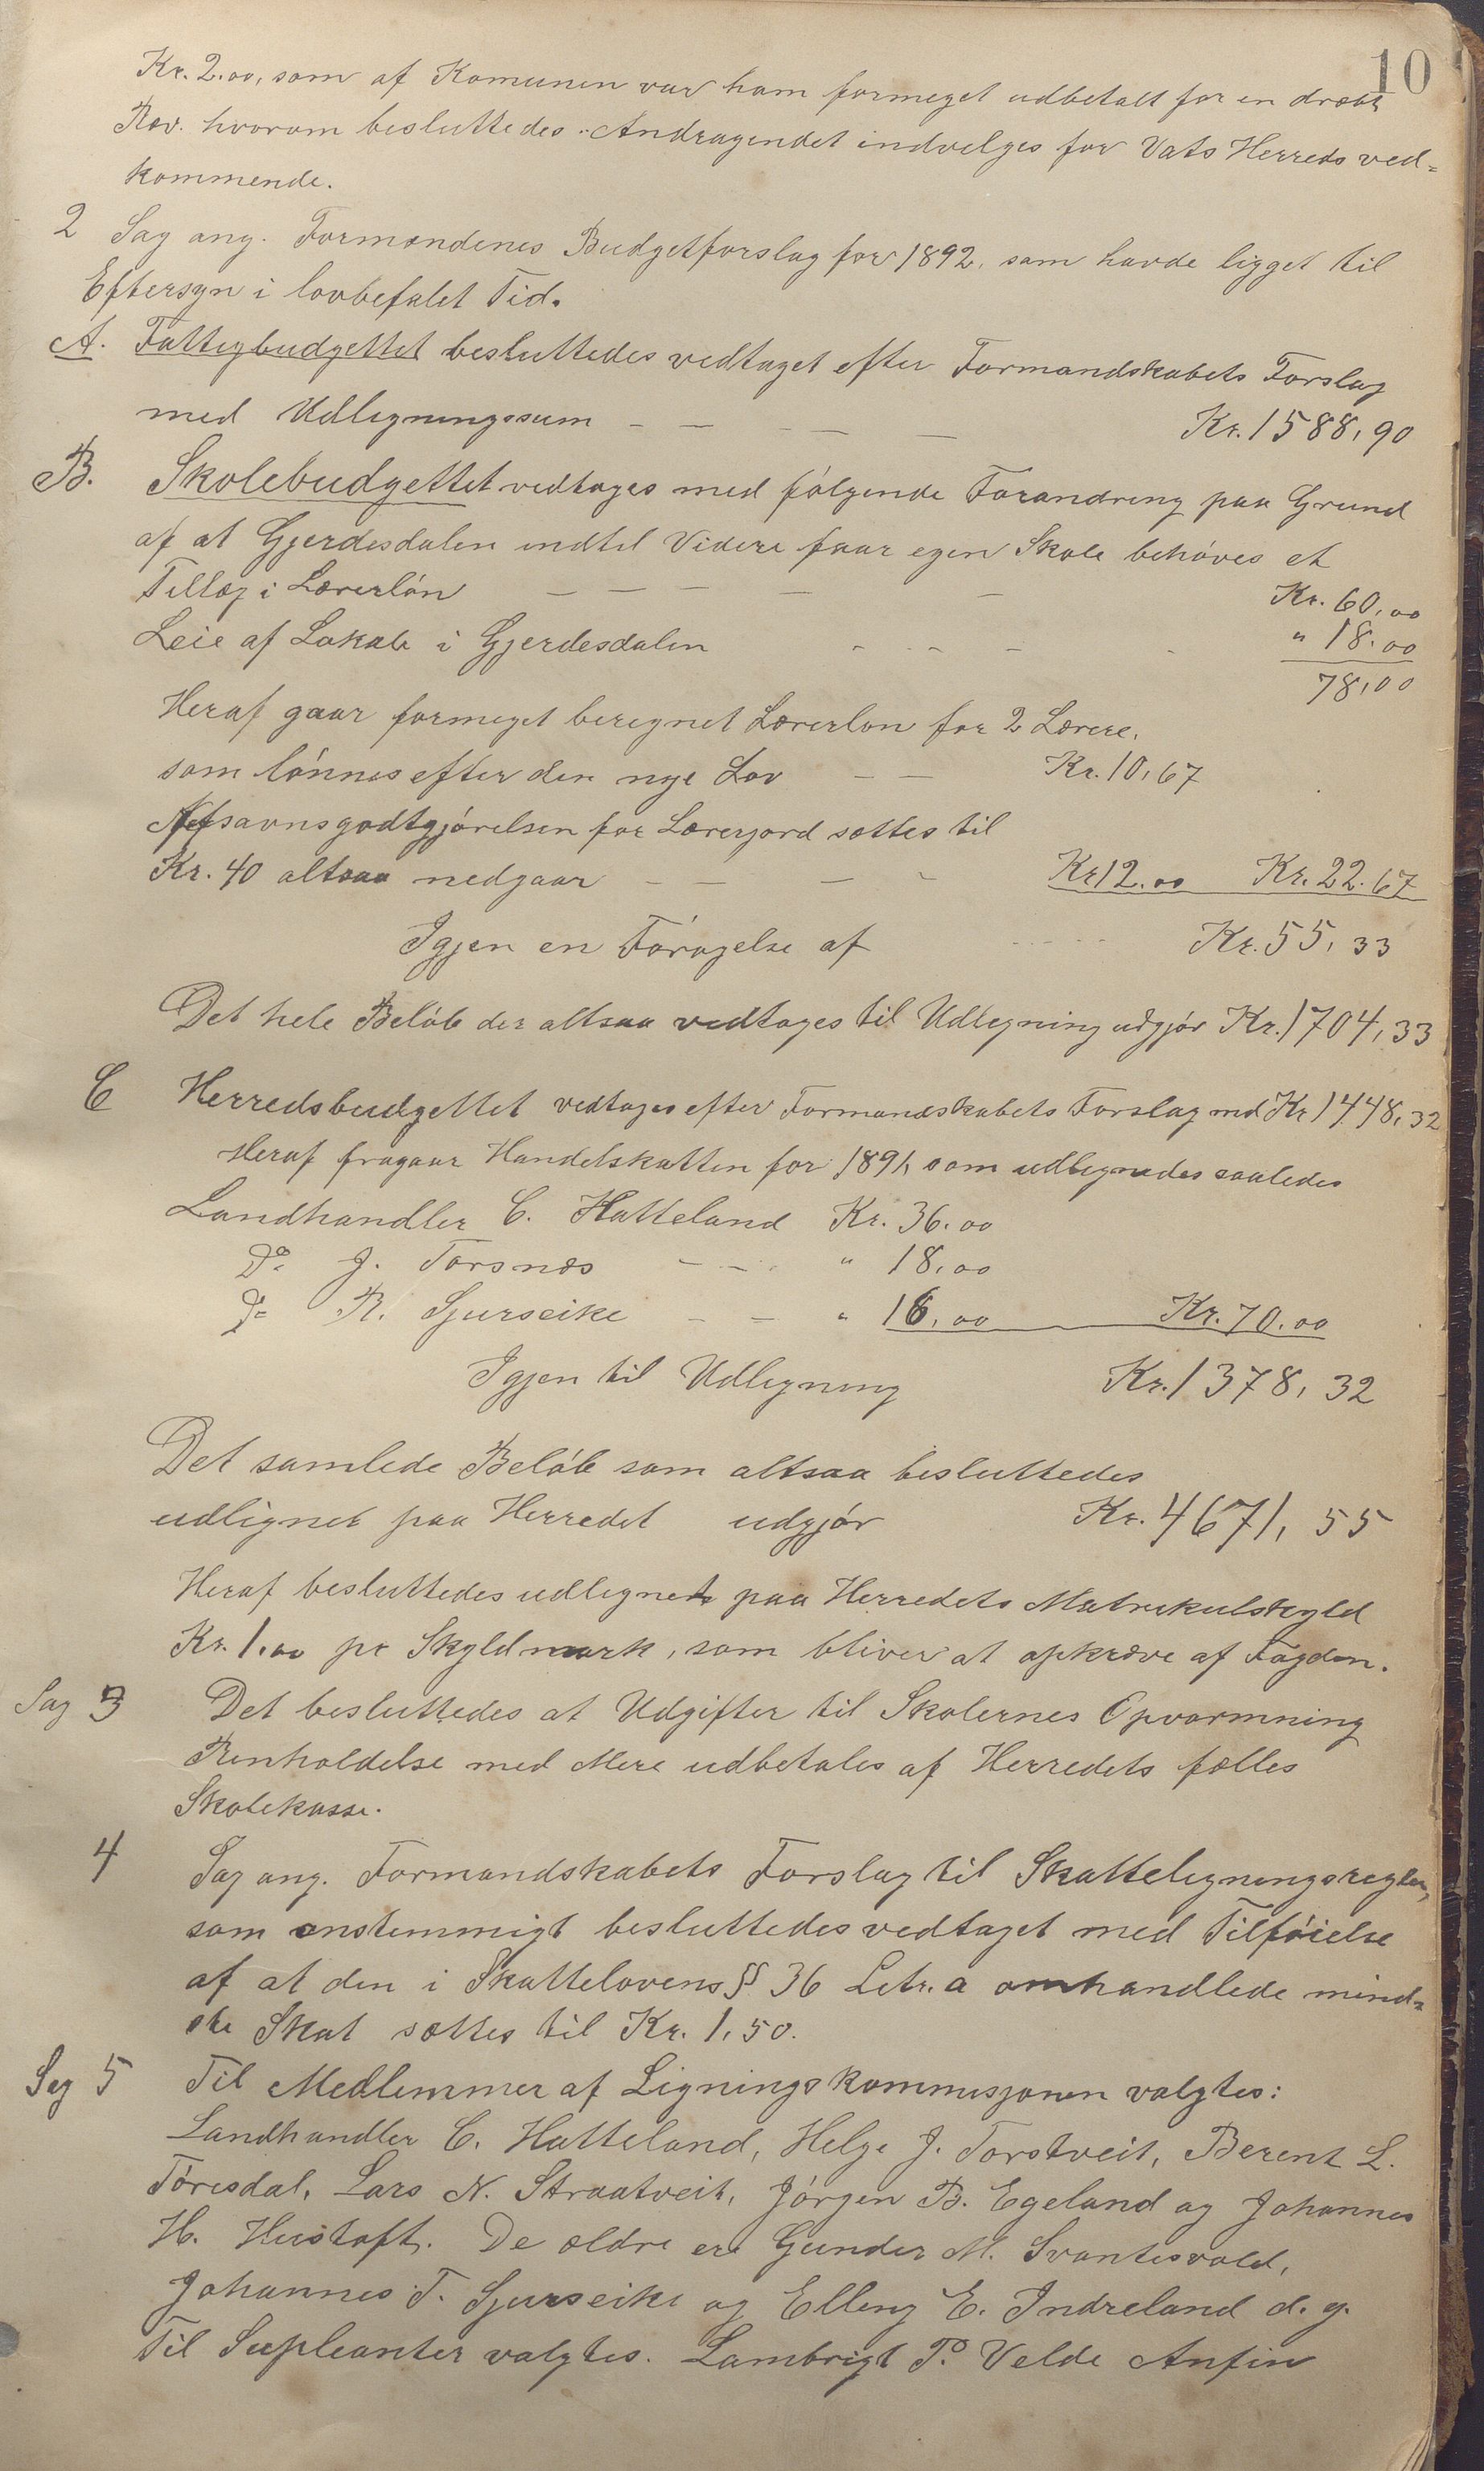 10
Kr. 2.00, som af Komunen var ham formeget udbetalt for en dræbt
Ræv. hvorom besluttedes. Andragendet indvelges for Vats Herreds ved=
kommende.
2 Sag ang. Formændenes Budgetforslag for 1892, som havde ligget til
Eftersyn i lovbefalet Tid.
A. Fattigbudgettet besluttedes vedtaget efter Formandskabets Forslag
med Udligningssum — — — — — Kr. 1588,90
B. Skolebudgettet vedtages med følgende Forandring paa Grund
af at Gjerdesdalen indtil Videre faar egen Skole behøves et
Tillæg i Lærerløn — — — — — Kr. 60,00
Leie af Lokale i Gjerdesdalen - - - — - " 18.00
78,00
Heraf gaar formeget beregnet Lærerløn for 2 Lærere,
som lønnes efter den nye Lov — — Kr. 10,67
Afsavnsgodtgjørelsen for Lærerjord sættes til
Kr. 40 altsaa nedgaar — — — - Kr 12.00 Kr. 22.67
Igjen en Forøgelse af ..... Kr. 55,33
Det hele Beløb der altsaa vedtages til Udligning udgjør Kr. 1704,33
C Herredsbudgettet vedtages efter Formandskabets Forslag md Kr 1448,32
Heraf fragaar Handelskatten for 1891, som udlignedes saaledes
Landhandler C. Hatteland Kr. 36.00
Do J. Torsnæs - - - " 18,00
Do R. Sjurseike — — " 16,00 Kr. 70.00
Igjen til Udligning Kr. 1378,32
Det samlede Beløb som altsaa besluttedes
udlignet paa Herredet udgjør Kr. 4671,55
Heraf besluttedes udlignet paa Herredets Matrikulskyld
Kr. 1.00 pr Skyldmark, som bliver at opkræve af Fogden.
Sag 3 Det besluttedes at Udgifter til Skolernes Opvarmning
Renholdelse med Mere udbetales af Herredets fælles
Skolekasse.
4 Sag ang. Formandskabets Forslag til Skatteligningsregler,
som enstemmigt besluttedes vedtaget med Tilføielse
af at den i Skattelovens §§ 36 Letr. a omhandlede mind=
ste Skat sættes til Kr. 1,50.
Sag 5 Til Medlemmer af Ligningskommisjonen valgtes:
Landhandler C. Hatteland, Helge J. Torstveit, Berent L.
Töresdal, Lars N. Straatveit, Jörgen B. Egeland og Johannes
H. Hustoft. De ældre ere Gunder M. Svantesvold,
Johannes T. Sjurseike og Elling E. Indreland d. y.
Til Supleanter valgtes. Lambrigt P. Velde Anfin